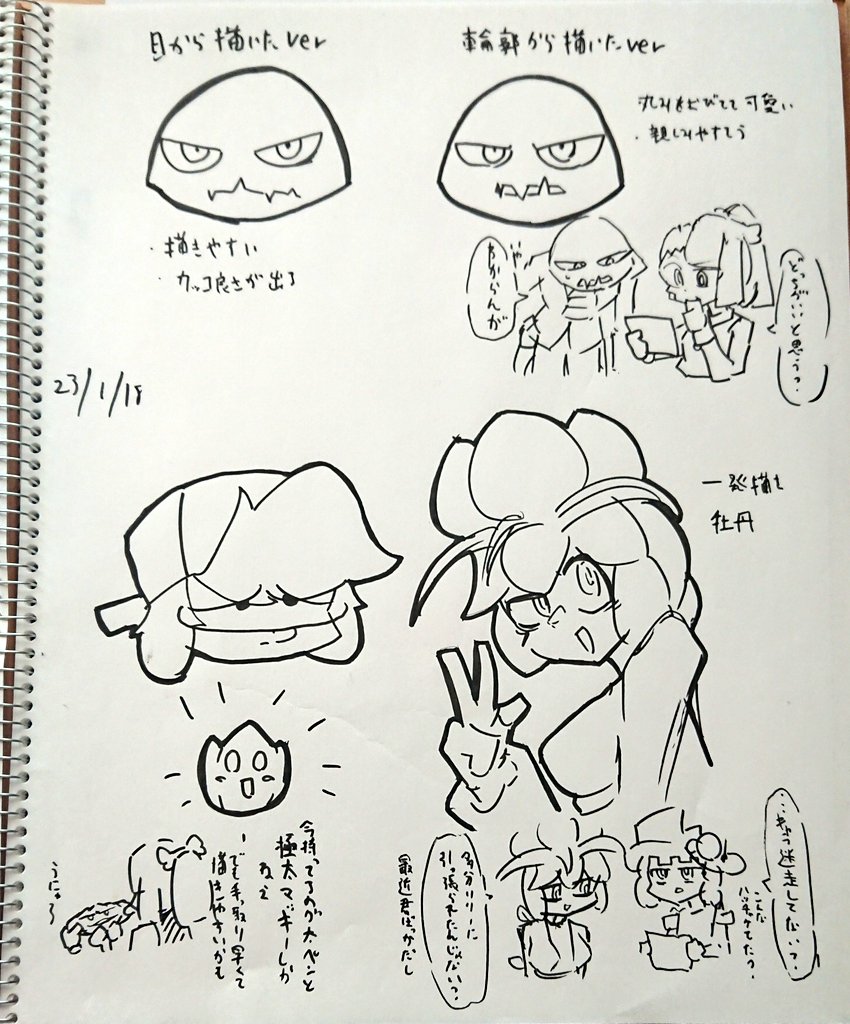 目から描いたver
輪郭から描いたver
・描きやすい
・カッコ良さが出る
丸みをおびてて可愛い
・親しみやすそう
いや
わからんが
どっちがいいと思う?
23/1/18
一発描き
牡丹
今持ってるのが太ペンと
極太マッキーしか
ねえ
ーでも手っ取り早くて
描きやすいかも
うにゃろ
多分リリーに
引っ張られたんじゃない?
最近君ばっかだし
迷走してない?
こんな